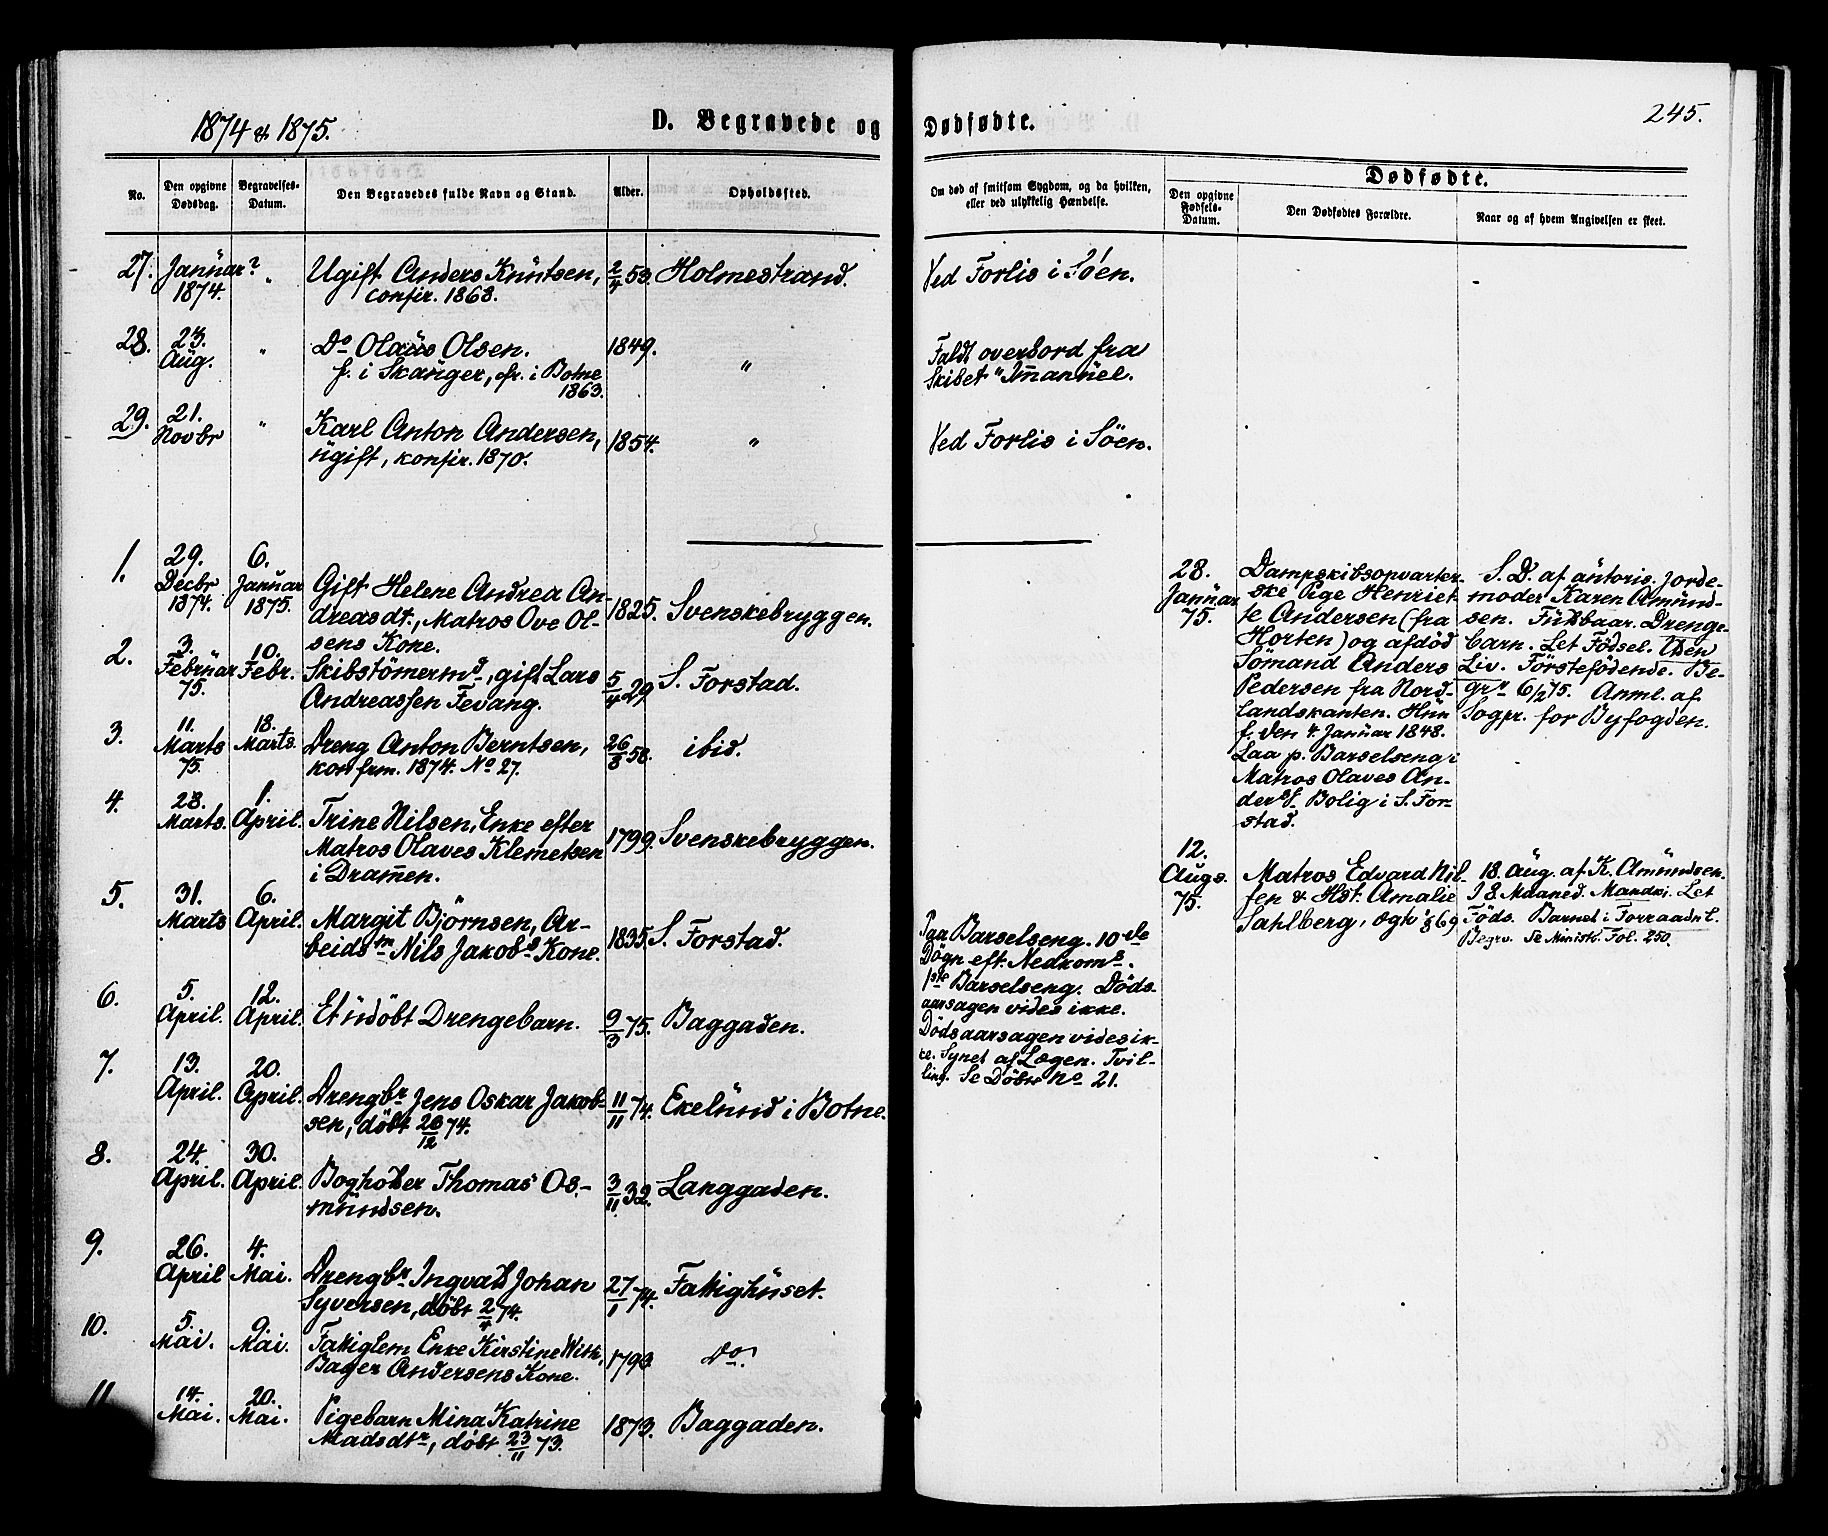 1874 & 1875.
D. Begravede og
Dødfødte.
245.
No.
Den opgivne Dødsdag.
Begravelses-Datum.
Den Begravedes fulde Navn og Stand.
Alder.
Opholdssted.
Om død af smitsom Sygdom, og da hvilken,
eller ved ulykkelig Hændelse.
Dødfødte.
Den opgivne Fødsels-Datum.
Den Dødfødtes Forældre.
Naar og af hvem Angivelsen er skeet.
27. Januar? 1874. " Ugift Anders Knutsen, 2/4 53. Holmestrand. Ved Forlis i Søen.
confir. 1868.
28. 23. Aug. " Do Olaus Olsen. 1849. " Faldt overbord fra
f. i Skanger, cfr. i Botne Skibet "Imanuel.
1863.
29. 21. Novbr " Karl Anton Andersen, 1854. " Ved Forlis i Søen.
ugift, konfir. 1870.
1. 29. Decbr 1874. 6. Januar 1875. Gift Helene Andrea An-
dreasdt., Matros Ove Ol- 1825. Svenskebryggen.
sens Kone.
2. 3. Februar 75. 10. Febr. Skibstömermd, gift Lars 5/4 29. S. Forstad.
Andreassen Fevang.
3. 11. Marts 75. 18. Marts. Dreng Anton Berntsen, 26/8 58. ibid.
konfrm. 1874. No 27.
4. 28. Marts. 1. April. Trine Nilsen, Enke efter
Matros Olaves Klemetsen 1799. Svenskebryggen.
i Dramen.
5. 31. Marts 6. April. Margit Björnsen, Ar-
beidsm Nils Jakobs Kone. 1835. S. Forstad.
Paa Barselseng. 10de
Dögn eft. Nedkoms.
1ste Barselseng. Döds-
aarsagen vides ikke.
6. 5. April. 12. April. Et udöbt Drengebarn. 9/3 75. Baggaden.
Dödsaarsagen vides ik-
ke. Synet af Lægen. Tvil-
ling. Se Döbte No 21.
7. 13. April. 20. April. Drengbr Jens Oskar Jakob- 11/11 74. Ekelund i Botne.
sen, döbt 26/12 74.
8. 24. April. 30. April. Bogholder Thomas Os- 3/11 32. Langgaden.
mundsen.
9. 26. April 4. Mai. Drengbr Ingvald Johan 27/1 74. Fattighuset.
Syversen, döbt 2/4 74.
10. 5. Mai. 9. Mai. Fattiglem Enke Kirstine
Bager Andersens Kone. 1793. Do.
11. 14. Mai. 20. Mai. Pigebarn Mina Katrine 1873. Baggaden.
Madsdtr, döbt 23/11 73.
28. Januar 75.
Dampskibsopvarter-
ske Pige Henriet-
te Andersen (fra
Horten) og afdöd
Sömand Anders
Pedersen fra Nord-
landskanten. Hun
f. den 4. Januar 1848.
Laa p. Barselseng i
Matros Olaves An-
ders. Bolig i S. For-
stad.
S. D. af autoris. Jorde-
moder Karen Amund-
sen. Fuldbaar. Drenge-
barn. Let Födsel. Uden
Liv. Förstefödende. Be-
gr. 6/2 75. Anml. af
Sogpr. for Byfogden.
12. Augs. 75.
Matros Edvard Nil-
sen & Hst. Amalie
Sahlberg, ægtv. 69
18. Aug. af K. Amundsen.
I 8. Maaned. Mandkj. Let
Föds. Barnet i Forraadn.
Begrv. Se Minist. Fol. 250.